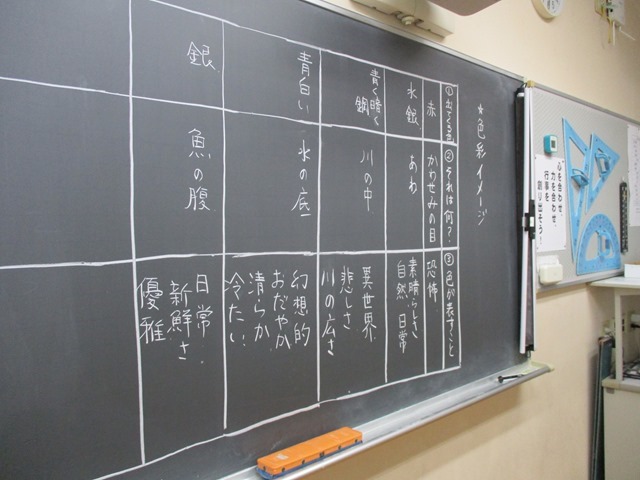 ★色彩イメージ
①出てくる色
②それは何？
③色が表すこと
赤
かわせみの目
恐怖
水銀
あわ
素晴らしさ
自然、日常
青く暗く
鋼
川の中
異世界
悲しさ
川の広さ
青白い
水の底
幻想的
おだやか
清らか
冷たい
銀
魚の腹
日常
新鮮さ
優雅
心を合わせ
力を合わせ
行事を
創り出そう！